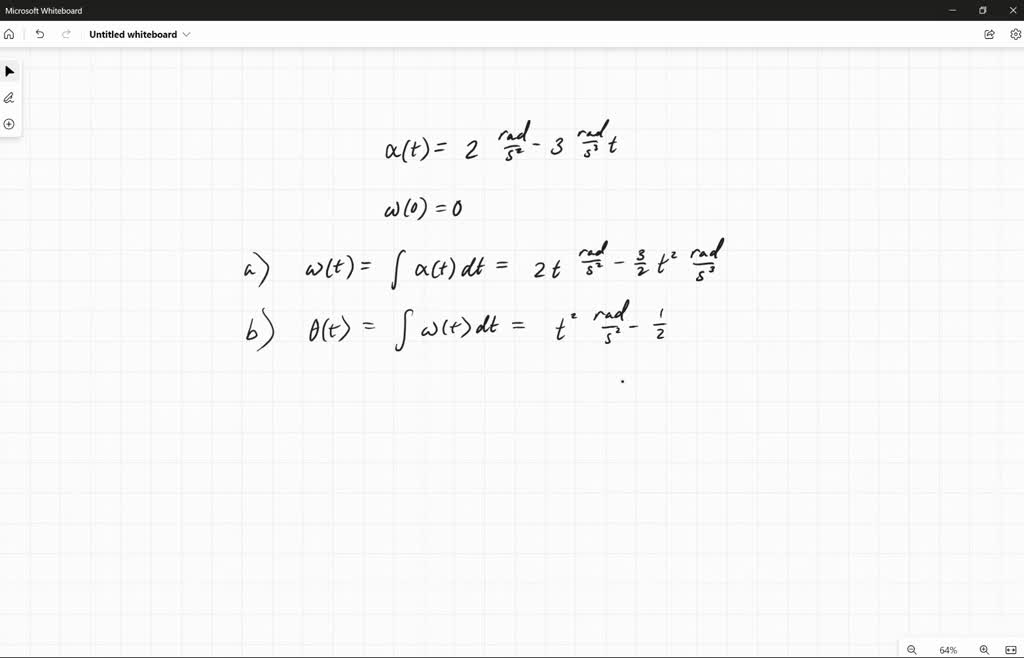 Microsoft Whiteboard
Untitled whiteboard
α(t) = 2 rad/s² - 3 rad/s³ t
ω(0) = 0
a) ω(t) = ∫ α(t) dt = 2t rad/s² - 3/2 t² rad/s³
b) θ(t) = ∫ ω(t) dt = t² rad/s² - 1/2
64%